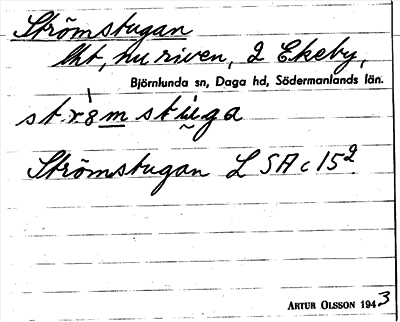 Strömstugan
lht, nu riven, 2 Ekeby,
Björnlunda sn, Daga hd, Södermanlands län.
Strömstugan L SA c 15²
ARTUR OLSSON 1943